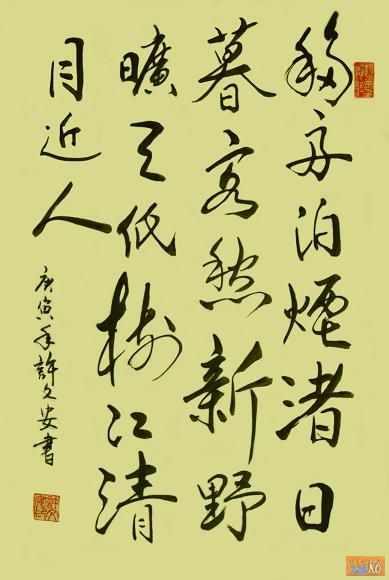 移舟泊煙渚日
暮客愁新野
曠天低樹江清
月近人
庚寅年許久安書
K6